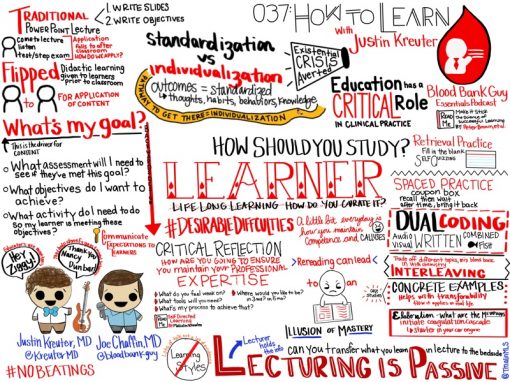 037: HOW TO LEARN
With Justin Kreuter
Blood Bank Guy
Essentials Podcast
TRADITIONAL
PowerPoint Lecture
1. WRITE SLIDES
2. WRITE OBJECTIVES
Come to lecture
listen
test/step exam
Application
falls to after
classroom
HOW DO I APPLY?
Flipped
Didactic learning
given to learners
prior to classroom
to
FOR APPLICATION
OF CONTENT
Standardization
vs
individualization
outcomes = standardized
thoughts, habits, behaviors, knowledge
PATHWAY TO GET THERE = INDIVIDUALIZATION
Existential
CRISIS
Averted
Education has a
CRITICAL Role
IN CLINICAL PRACTICE
READ
ME
Make it Stick
the science of
Successful Learning
by Peter Brown, et al.
What's my goal?
This is the driver for
CONTENT
What assessment will I need to
see if they've met this goal?
What objectives do I want to
achieve?
What activity do I need to do
so my learner is meeting these
objectives?
Communicate
EXPECTATIONS TO
LEARNERS
HOW SHOULD YOU STUDY?
LEARNER
LIFE LONG LEARNING HOW DO YOU CURATE IT?
#DESIRABLE DIFFICULTIES
A little Bit everyday is
how you maintain
Competence and CALLUSES
CRITICAL REFLECTION
HOW ARE YOU GOING TO ENSURE
YOU MAINTAIN YOUR PROFESSIONAL
EXPERTISE
What do you feel weak on?
What tools will you need?
What's my process to achieve that?
Where would you like to be?
READ
ME
Self Directed
Learning
by Malcolm Knowles
Rereading can lead
to
an
ILLUSION OF MASTERY
Retrieval Practice
Fill in the blank
SELF QUIZZING
SPACED PRACTICE
coupon box
recall then wait
after time, bring it back
DUAL CODING!
Audio
Visual
WRITTEN
COMBINED
INTERLEAVING
CONCRETE EXAMPLES
Helps with transferability
then it applies in real life
Elaboration - what are the
initiate coagulation cascade
starter in your car engine
Hey Ziggy!
Thank you
Nancy
Dunbar!
Justin Kreuter, MD
@KreuterMD
Joe Chaffin, MD
@bloodbankguy
#NO BEATINGS
Learning
Styles
Lecture
holds the
info
can you transfer what you learn
in lecture to the bedside?
LECTURING IS PASSIVE